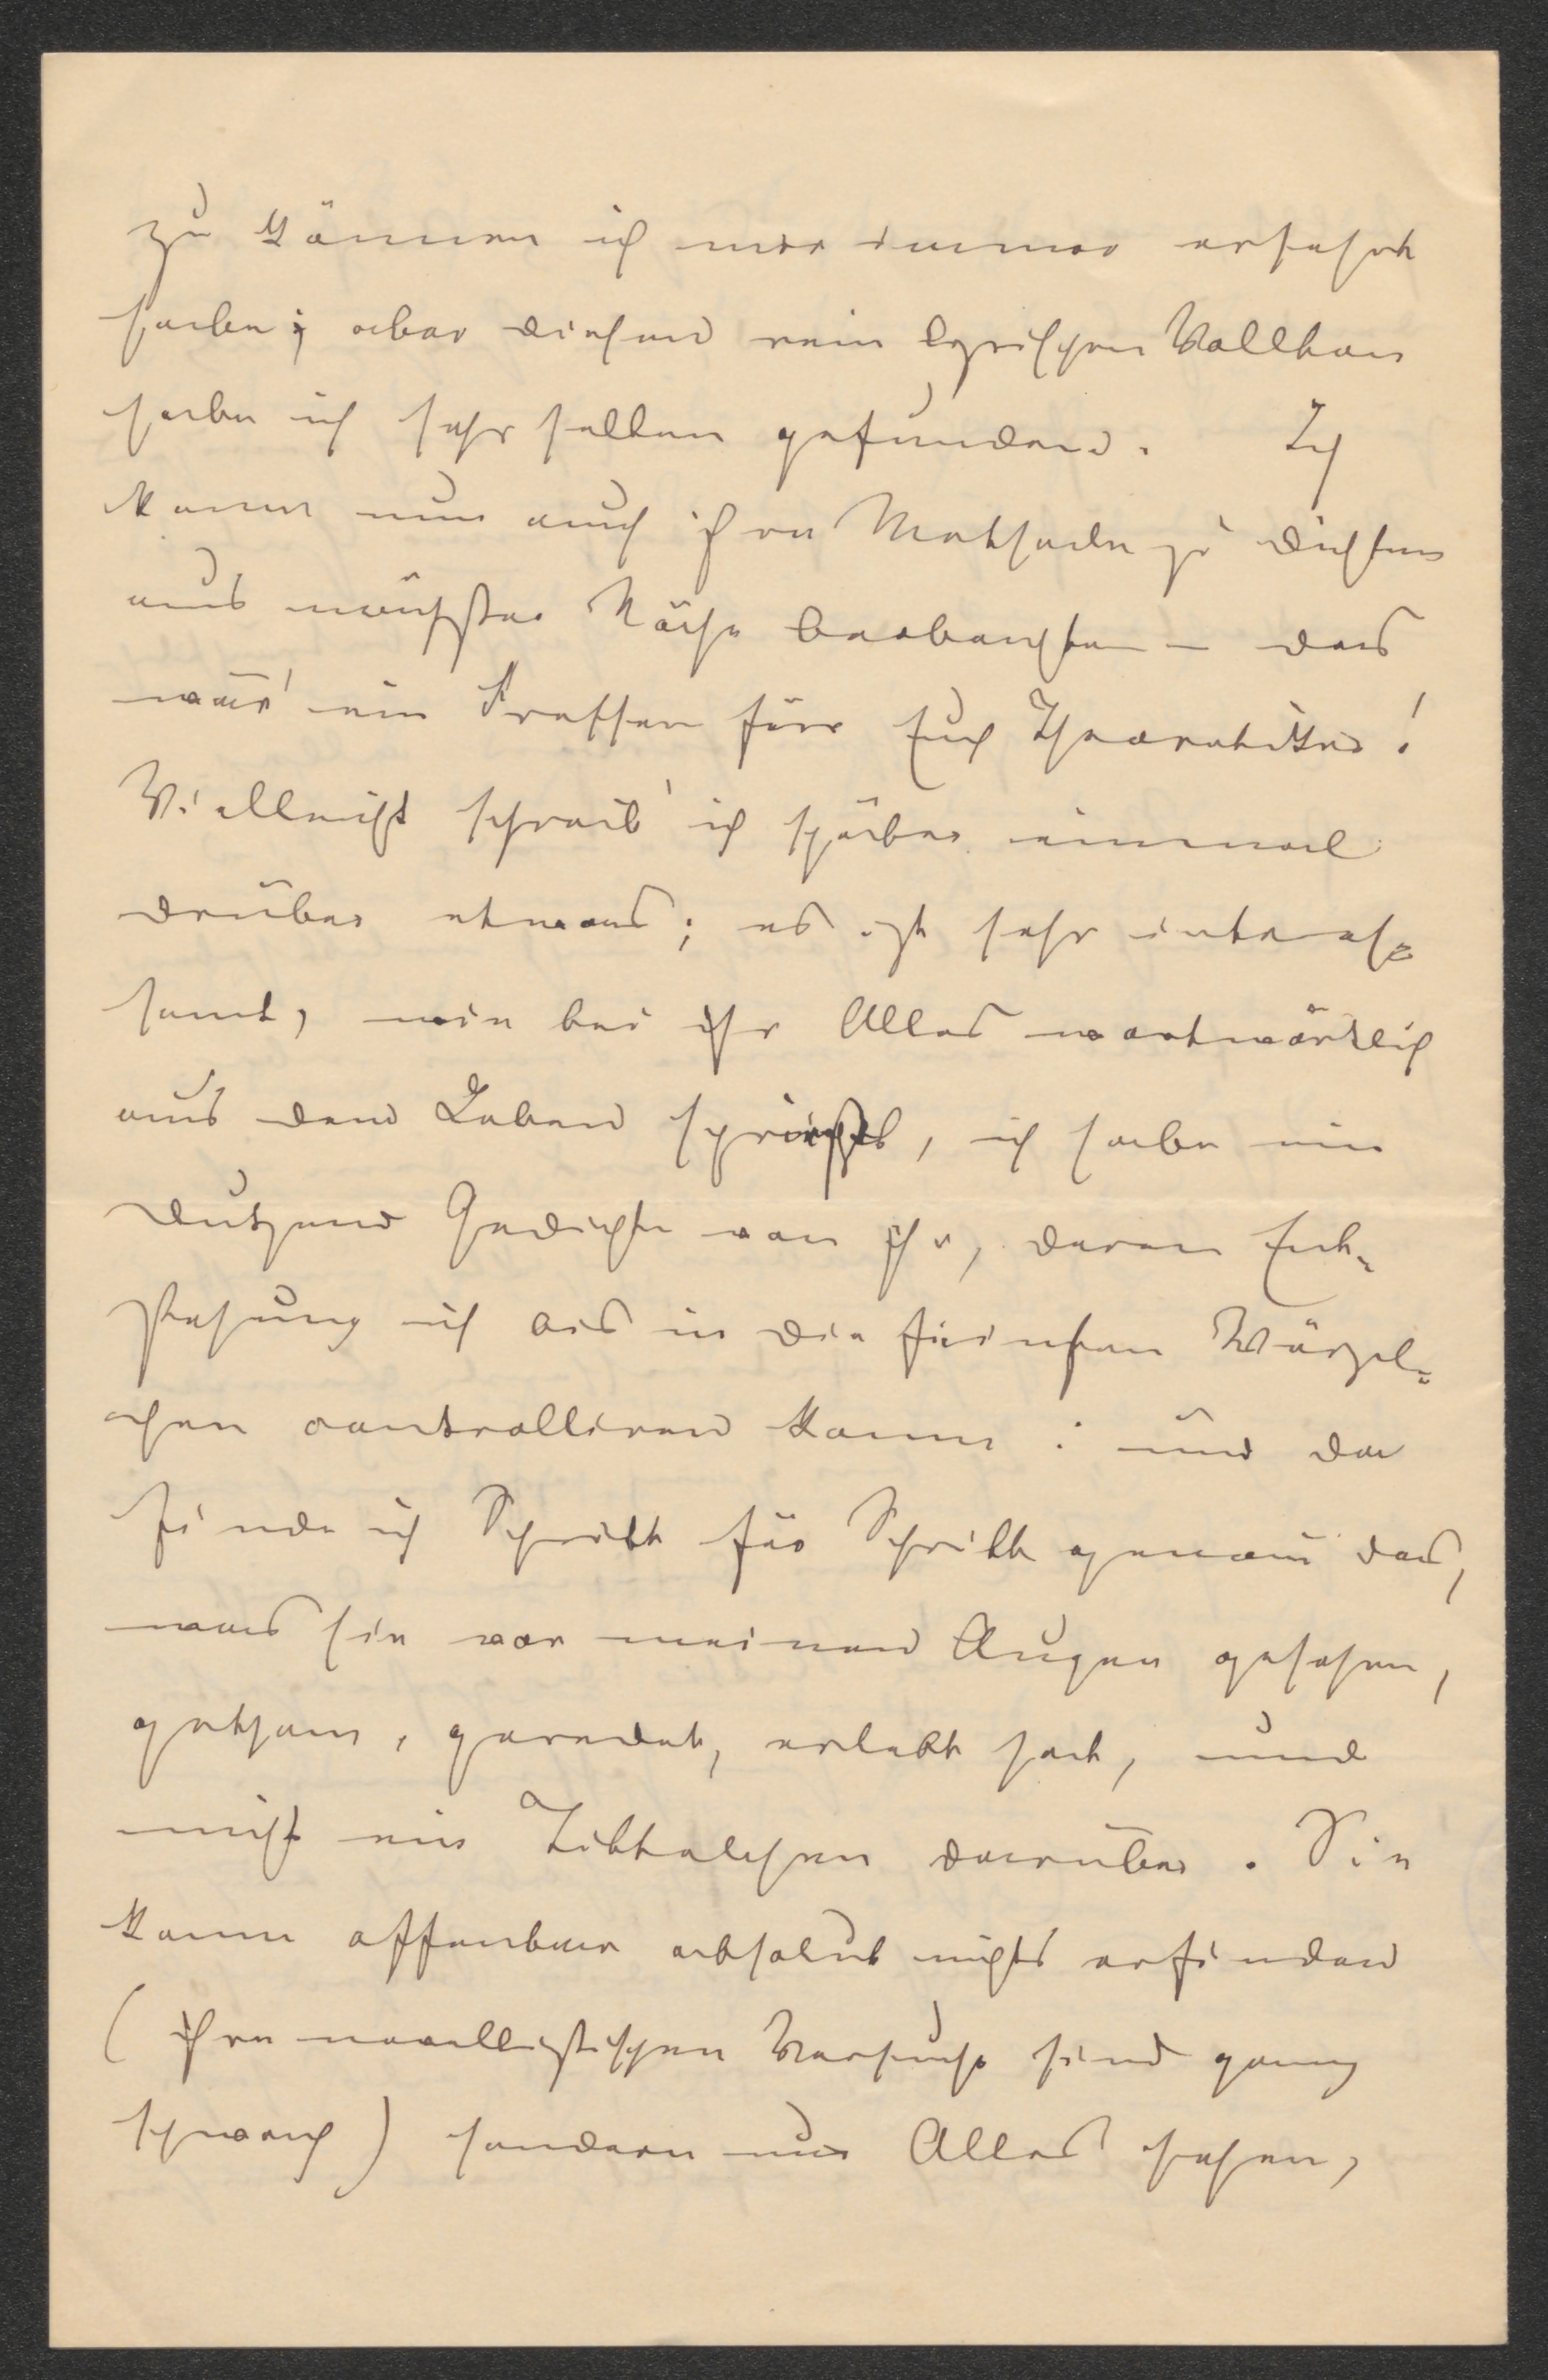 zu können ich mir immer ersehnt
habe; aber diesen rein lyrischen Vollton
habe ich sehr selten gefunden. Ich
kann nun auch ihre Methode zu dichten
aus nächster Nähe beobachten – das
wär' ein Fressen für Euch Theoretiker!
Vielleicht schreib' ich später einmal
drüber etwas; es ist sehr interes-
sant, wie bei ihr Alles wortwörtlich
aus dem Leben sprießt, ich habe ein
Dutzend Gedichte von ihr, deren Ent-
stehung ich bis in die feinsten Würzel-
chen controlliren kann: und da
finde ich Schritt für Schritt genau das,
was sie vor meinen Augen gesehen,
gethan, geredet, erlebt hat, und
nicht ein Tittelchen darüber. Sie
kann offenbar absolut nichts erfinden
(ihre novellistischen Versuche sind ganz
schwach) sondern nur Alles sehen,